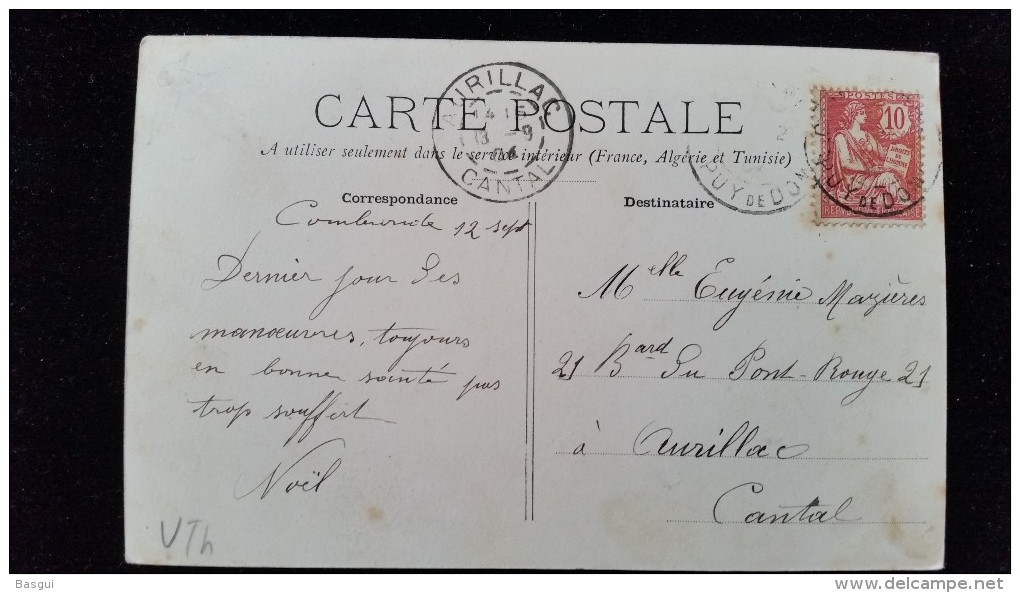 CARTE POSTALE
A utiliser seulement dans le service intérieur (France, Algérie et Tunisie)
AURILLAC
13 -9
04
CANTAL
PUY DE DOME
PUY DE DOME
POSTES
10
DROITS DE L'HOMME
REPUBLIQUE FRANCAISE
Correspondance
Combronde 12 sept
Dernier jour des
manœuvres, toujours
en bonne santé pas
trop souffert
Noël
VTh
Destinataire
Melle Eugénie Mazières
21 Bard du Pont-Rouge 21
à Aurillac
Cantal
Basgui
www.delcampe.net